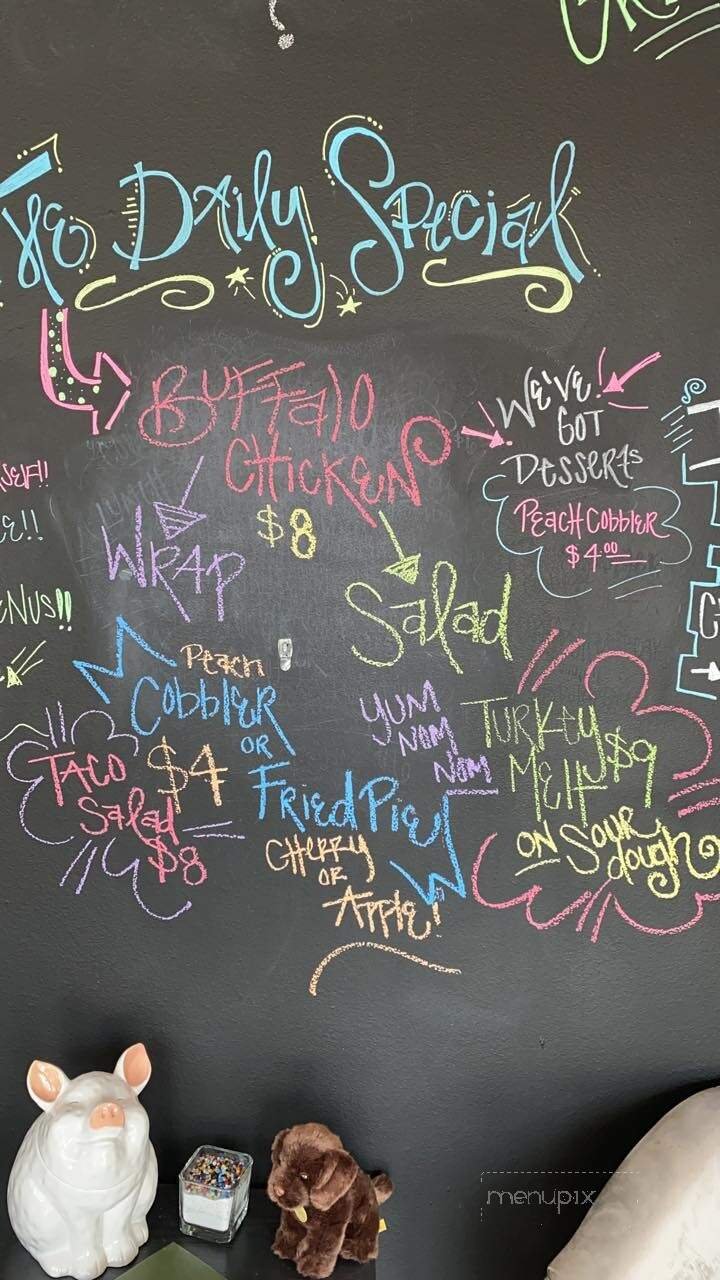 The Daily Special
Buffalo
Chicken
$8
Wrap
Salad
We've
Got
Desserts
Peach Cobbler
$4.00
Peach
Cobbler
or
$4
Fried Pie
Cherry
or
Apple!
Taco
Salad
$8
Yum
Nom
Nom
Turkey $9
Melt
on Sour
dough
menupix